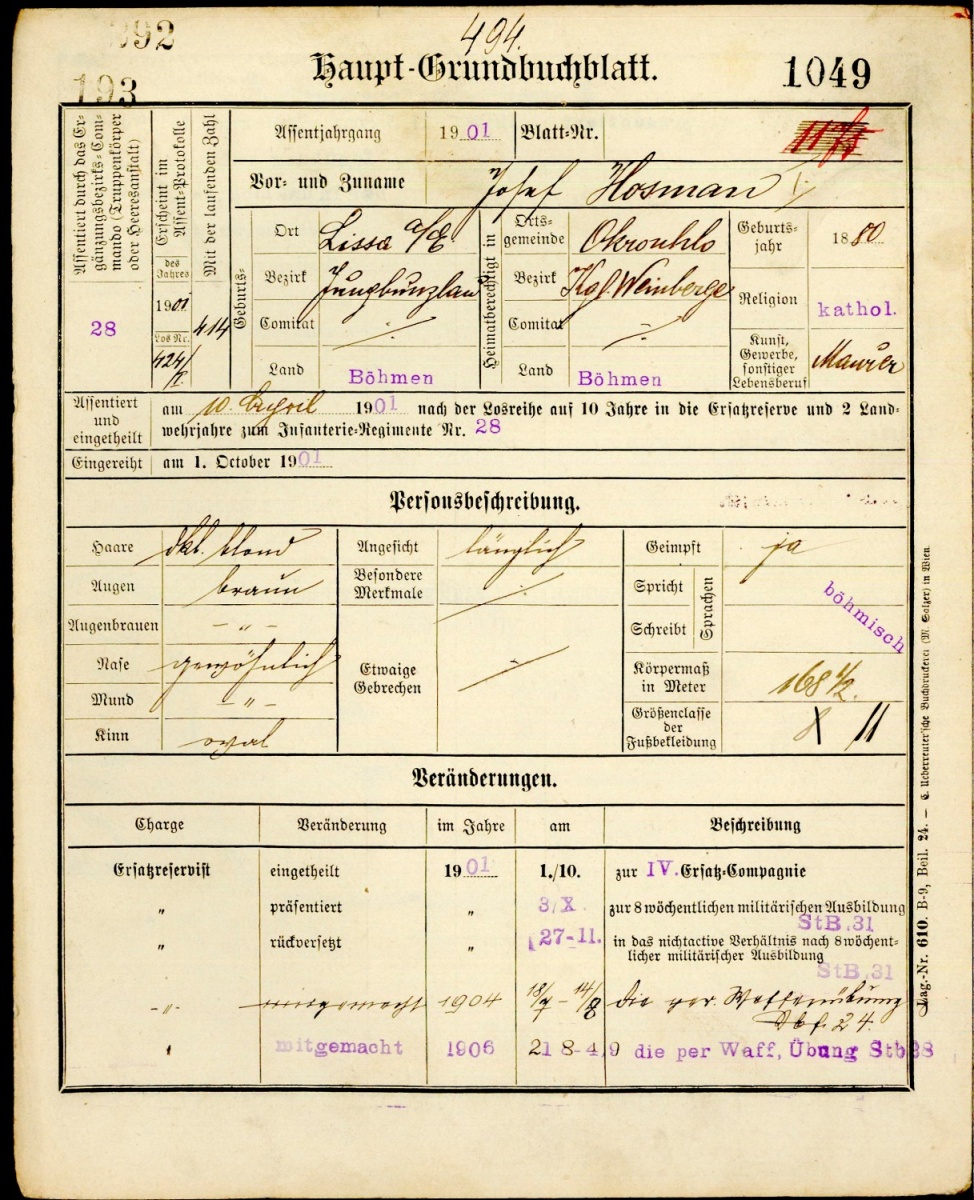 392
494.
193
Haupt-Grundbuchblatt.
1049
Assentiert durch das Er-
gänzungsbezirks-Com-
mando (Truppenkörper
oder Heeresanstalt)
28
Erscheint im
Assent-Protokolle
des
Jahres
1901
Los Nr.
424/I.
Mit der laufenden Zahl
414
Assentjahrgang 1901 Blatt-Nr.
Vor- und Zuname Josef Hosman
Geburts-
Ort Lissa a/E.
Bezirk Jungbunzlau
Comitat ·/·
Land Böhmen
Heimatberechtigt in
Orts-
gemeinde Okrouhlo
Bezirk Kgl. Weinberge
Comitat ·/·
Land Böhmen
Geburts-
jahr 1880
Religion kathol.
Kunst,
Gewerbe,
sonstiger
Lebensberuf Maurer
Assentiert
und
eingetheilt
am 10. April 1901 nach der Losreihe auf 10 Jahre in die Ersatzreserve und 2 Land-
wehrjahre zum Infanterie-Regimente Nr. 28
Eingereiht am 1. October 1901
Personsbeschreibung.
Haare dkl. blond
Augen braun
Augenbrauen -„-
Nase gewöhnlich
Mund -„-
Kinn oval
Angesicht länglich
Besondere
Merkmale ·/·
Etwaige
Gebrechen ·/·
Geimpft ja
Spricht
Schreibt
Sprachen
böhmisch
Körpermaß
in Meter 168 1/2.
Größenclasse
der
Fußbekleidung 8 11
Veränderungen.
Charge Veränderung im Jahre am Beschreibung
Ersatzreservist eingetheilt 1901 1./10. zur IV. Ersatz-Compagnie
„ präsentiert „ 3/X. zur 8 wöchentlichen militärischen Ausbildung
StB. 31
„ rückversetzt „ 27-11. in das nichtactive Verhältnis nach 8 wöchent-
licher militärischer Ausbildung
StB. 31
-„- mitgemacht 1904 18/7 - 14/8 die per. Waffenübung
24.
mitgemacht 1906 21 8-4 9 die per Waff, Übung Stb 28
Lag.-Nr. 610. B-9, Beil. 24. — C. Ueberreuter'sche Buchdruckerei (M. Salzer) in Wien.